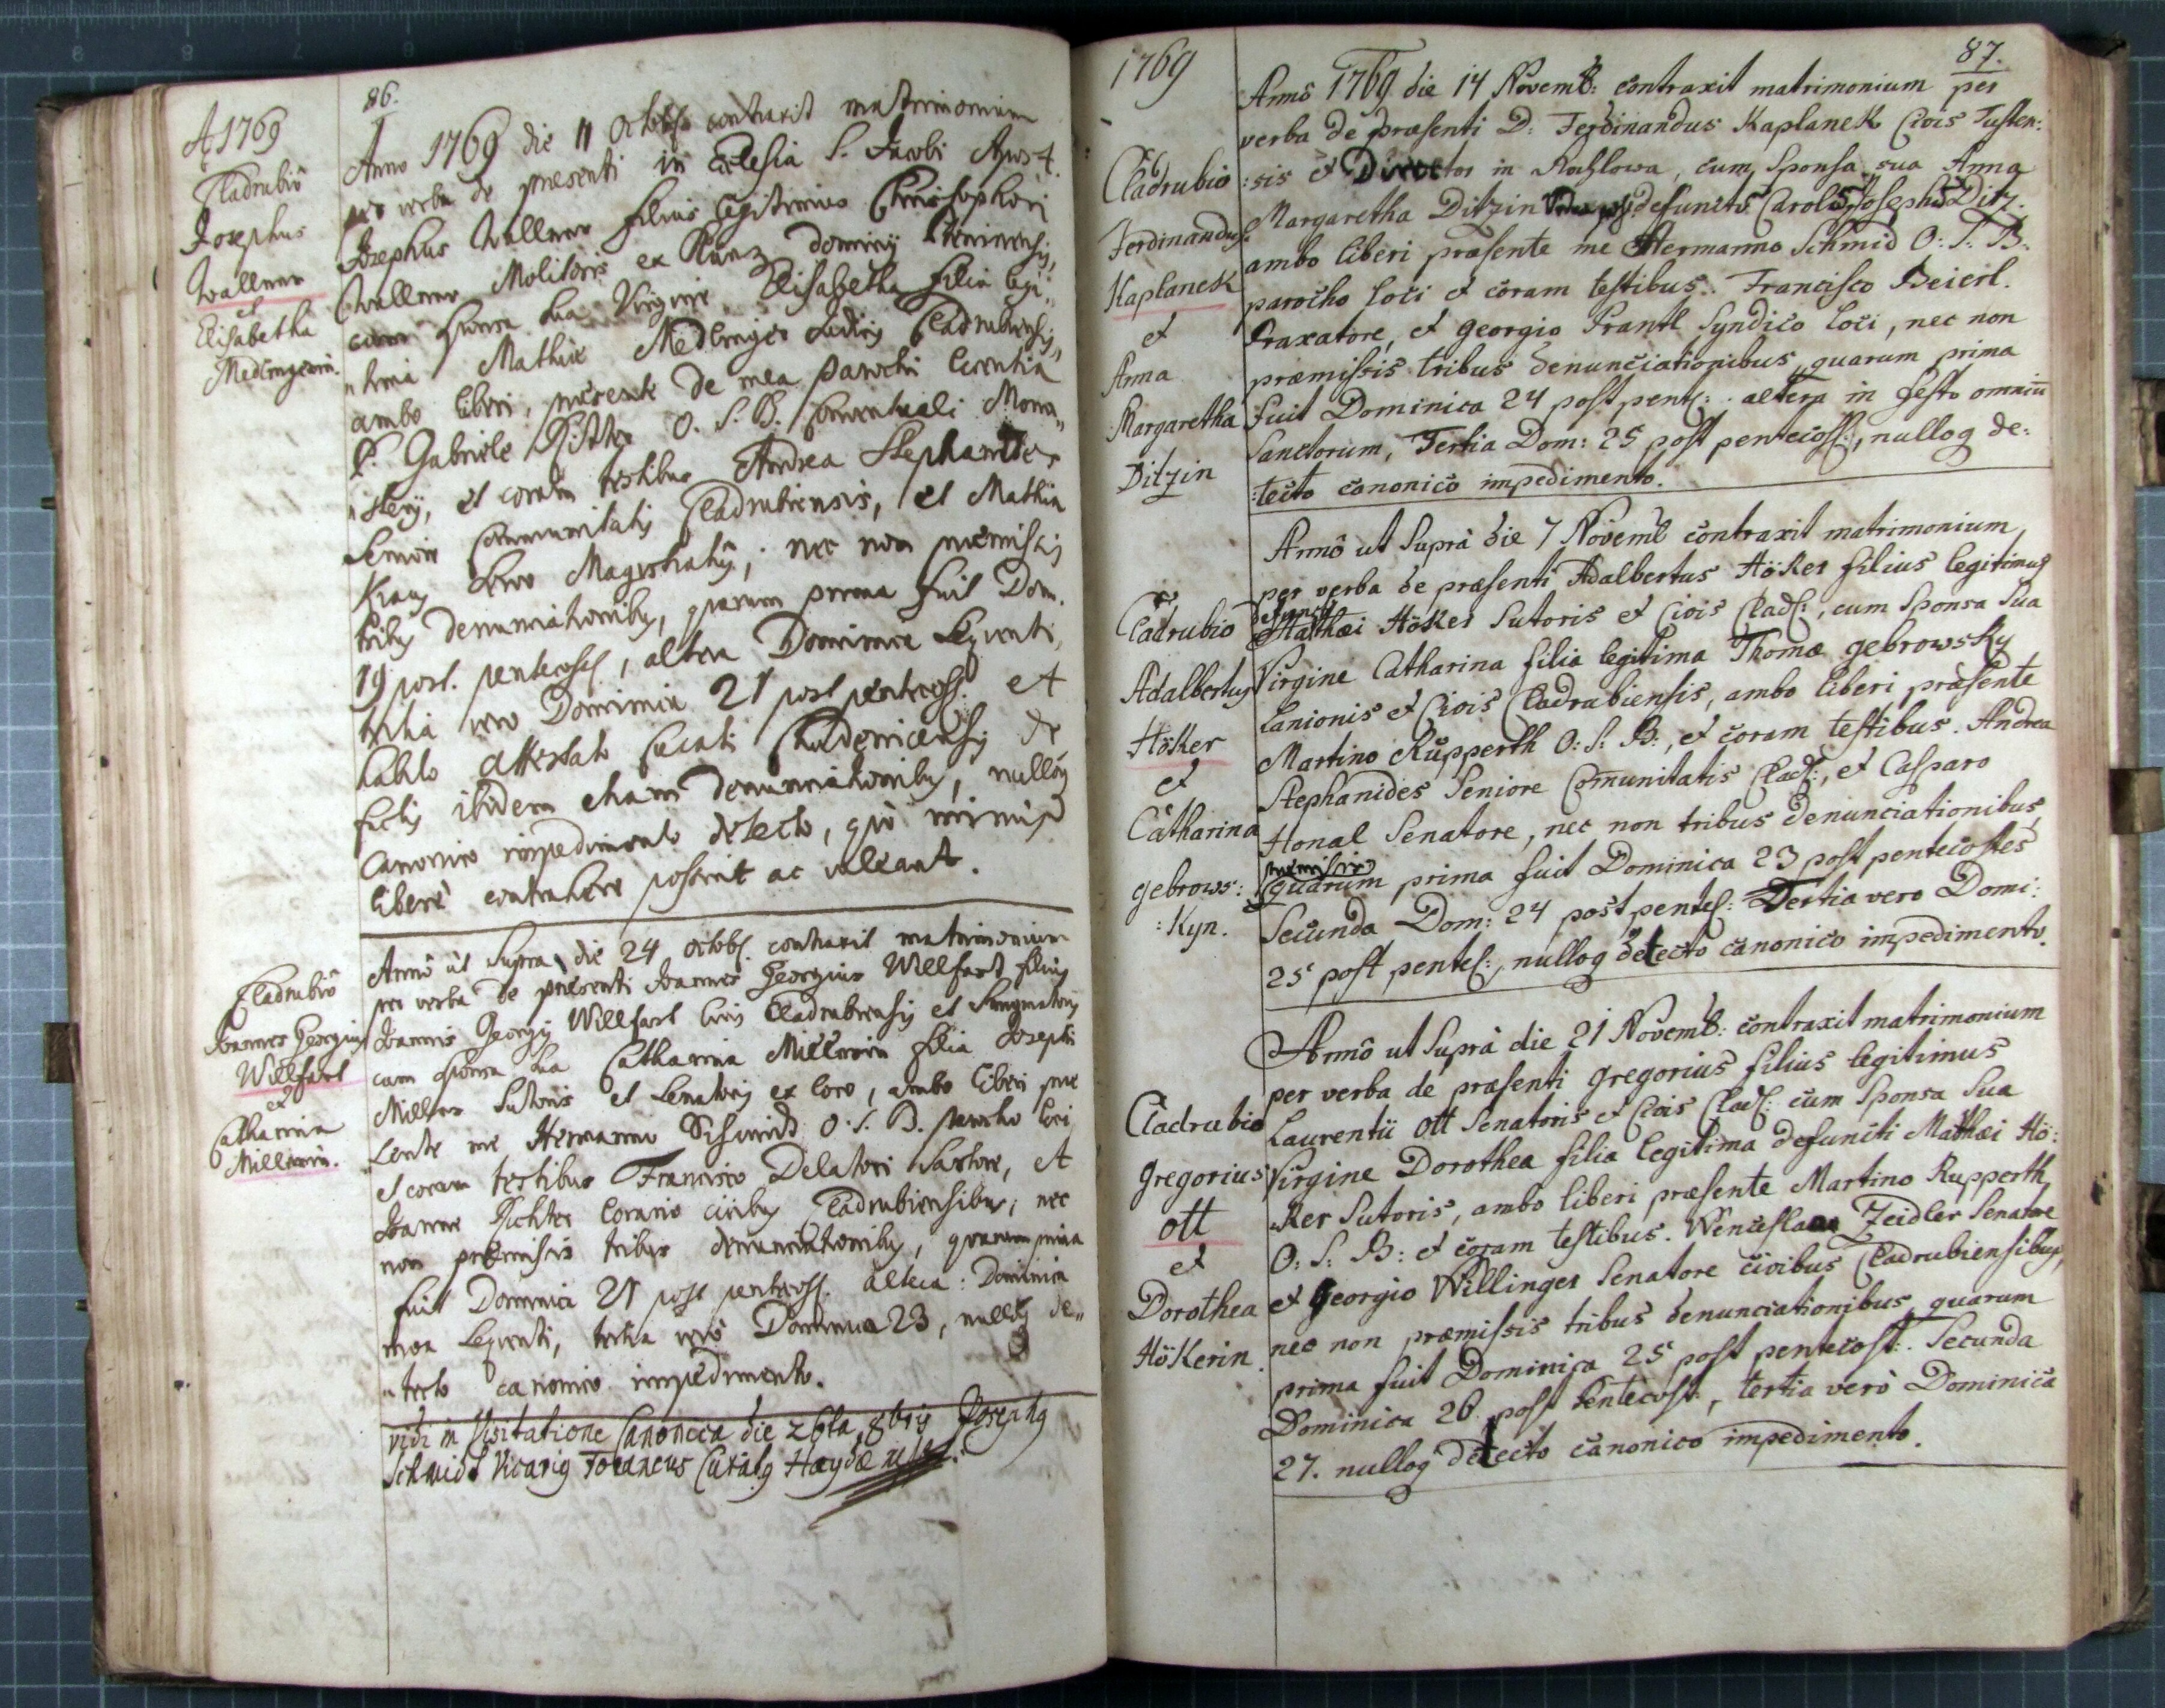 86.
A 1769
Cladrubiô
Josephus
Wallner
et
Elisabetha
Medlingerin.
Anno 1769 die 11 Octobris contraxit matrimonium
per verba de praesenti in Eclesia S. Jacobi Apost.
Josephus Wallner filius legitimus Christophori
Wallner Molitoris ex dominÿ
cum Sponsa sua Virgine Elisabetha filia legi„
„tima Mathiæ Medlinger Cladrubiensis,
ambo liberi, præsente de mea Parochi licentia
P. Gabriele O. S. B. Conventuali Mona„
„sterÿ, et coram testibus Andrea Stephanides
Seniore Communitatis Cladrubiensis, et Mathia
Magistratûs, nec non præmissis
tribus denunciationibus, quarum prima fuit Dom.
19 post. pentecost, altera Dominica Sequenti,
tertia vero Dominica 21 post pentecost. et
habito Attestato Curati de
factis ibidem etiam denunciationibus, nulloq
Canonico impedimento detecto, quò minus
liberè contrahere possint ac valeant.
Cladrubiô
Joannes Georgius
Willfart
et
Catharina
Millerin.
Annô ut Supra die 24 octob. contraxit matrimonium
per verba de præsenti Joannes Georgius Willfart filius
Joannis Georgÿ Willfart Civis Cladrubiensis et
cum sponsa sua Catharina Millerin filia Josephi
Miller Sutoris et Senatoris ex loco, ambo liberi præ
„sente me Hermanno Schmid O. S. B. parocho loci
et coram testibus Francisco Delatori Sartore, et
Joanne Richter Corario civibus Cladrubiensibus, nec
non præmissis tribus denunciationibus, quarum prima
fuit Dominica 21 post pentecost. altera: Dominica
Sequenti, tertia verò Dominica 23, nulloq de„
„tecto canonico impedimento.
vidi in Visitatione Canonica die 26ta 8bris Josephq
Schmidt Vicariq Foraneus Curatq Haydæ
87.
1769
Cladrubio
Ferdinandus
Kaplanek
et
Anna
Margaretha
Ditzin
Annô 1769 die 14 Novemb: contraxit matrimonium per
verba de præsenti D: Ferdinandus Kaplanek Civis Tusten:
:sis et Director in Rochlowa, cum Sponsa sua Anna
Margaretha Ditzin defuncti Caroli Josephi Ditz.
ambo liberi præsente me Hermanno Schmid O: S: B:
parocho loci et coram testibus. Francisco Beierl.
Braxatore, et Georgio Prantl Syndico loci, nec non
præmissis tribus denunciationibus, quarum prima
fuit Dominica 24 post pent: altera in festo omniū
Sanctorum, Tertia Dom: 25 post pentecost:, nulloq de:
:tecto canonico impedimento.
Cladrubio
Adalbertus
Höker
et
Catharina
gebrows:
:kyn.
Annô ut Suprà die 7 Novemb contraxit matrimonium
per verba de præsenti Adalbertus Höker filius legitimus
defuncti
Mathæi Höker Sutoris et Civis Clad:, cum Sponsa Sua
Virgine Catharina filia legitima Thomæ gebrowsky
Lanionis et Civis Cladrubiensis, ambo liberi præsente
Martino Rupperth O: S: B:, et coram testibus. Andrea
Stephanides Seniore Comunitatis Clad:, et Casparo
Honal Senatore, nec non tribus denunciationibus,
præmissis
quarum prima fuit Dominica 23 post pentecostes
Secunda Dom: 24 post pentec: Tertia vero Domi:
25 post pentec:, nulloq detecto canonico impedimento.
Cladrubio
Gregorius
ott
et
Dorothea
Hökerin.
Annô ut Suprà die 21 Novemb: contraxit matrimonium
per verba de præsenti Gregorius filius legitimus
Laurentii ott Senatoris et Civis Clad: cum Sponsa Sua
Virgine Dorothea filia legitima defuncti Mathæi Hö:
:ker Sutoris, ambo liberi præsente Martino Rupperth
O: S: B: et coram testibus. Wenceslao Zeidler Senatore
et Georgio Willinger Senatore civibus Cladrubiensibus,
nec non præmissis tribus denunciationibus, quarum
prima fuit Dominica 25 post pentecost:. Secunda
Dominica 26 post Pentecost:, tertia verò Dominica
27. nulloq detecto canonico impedimento.